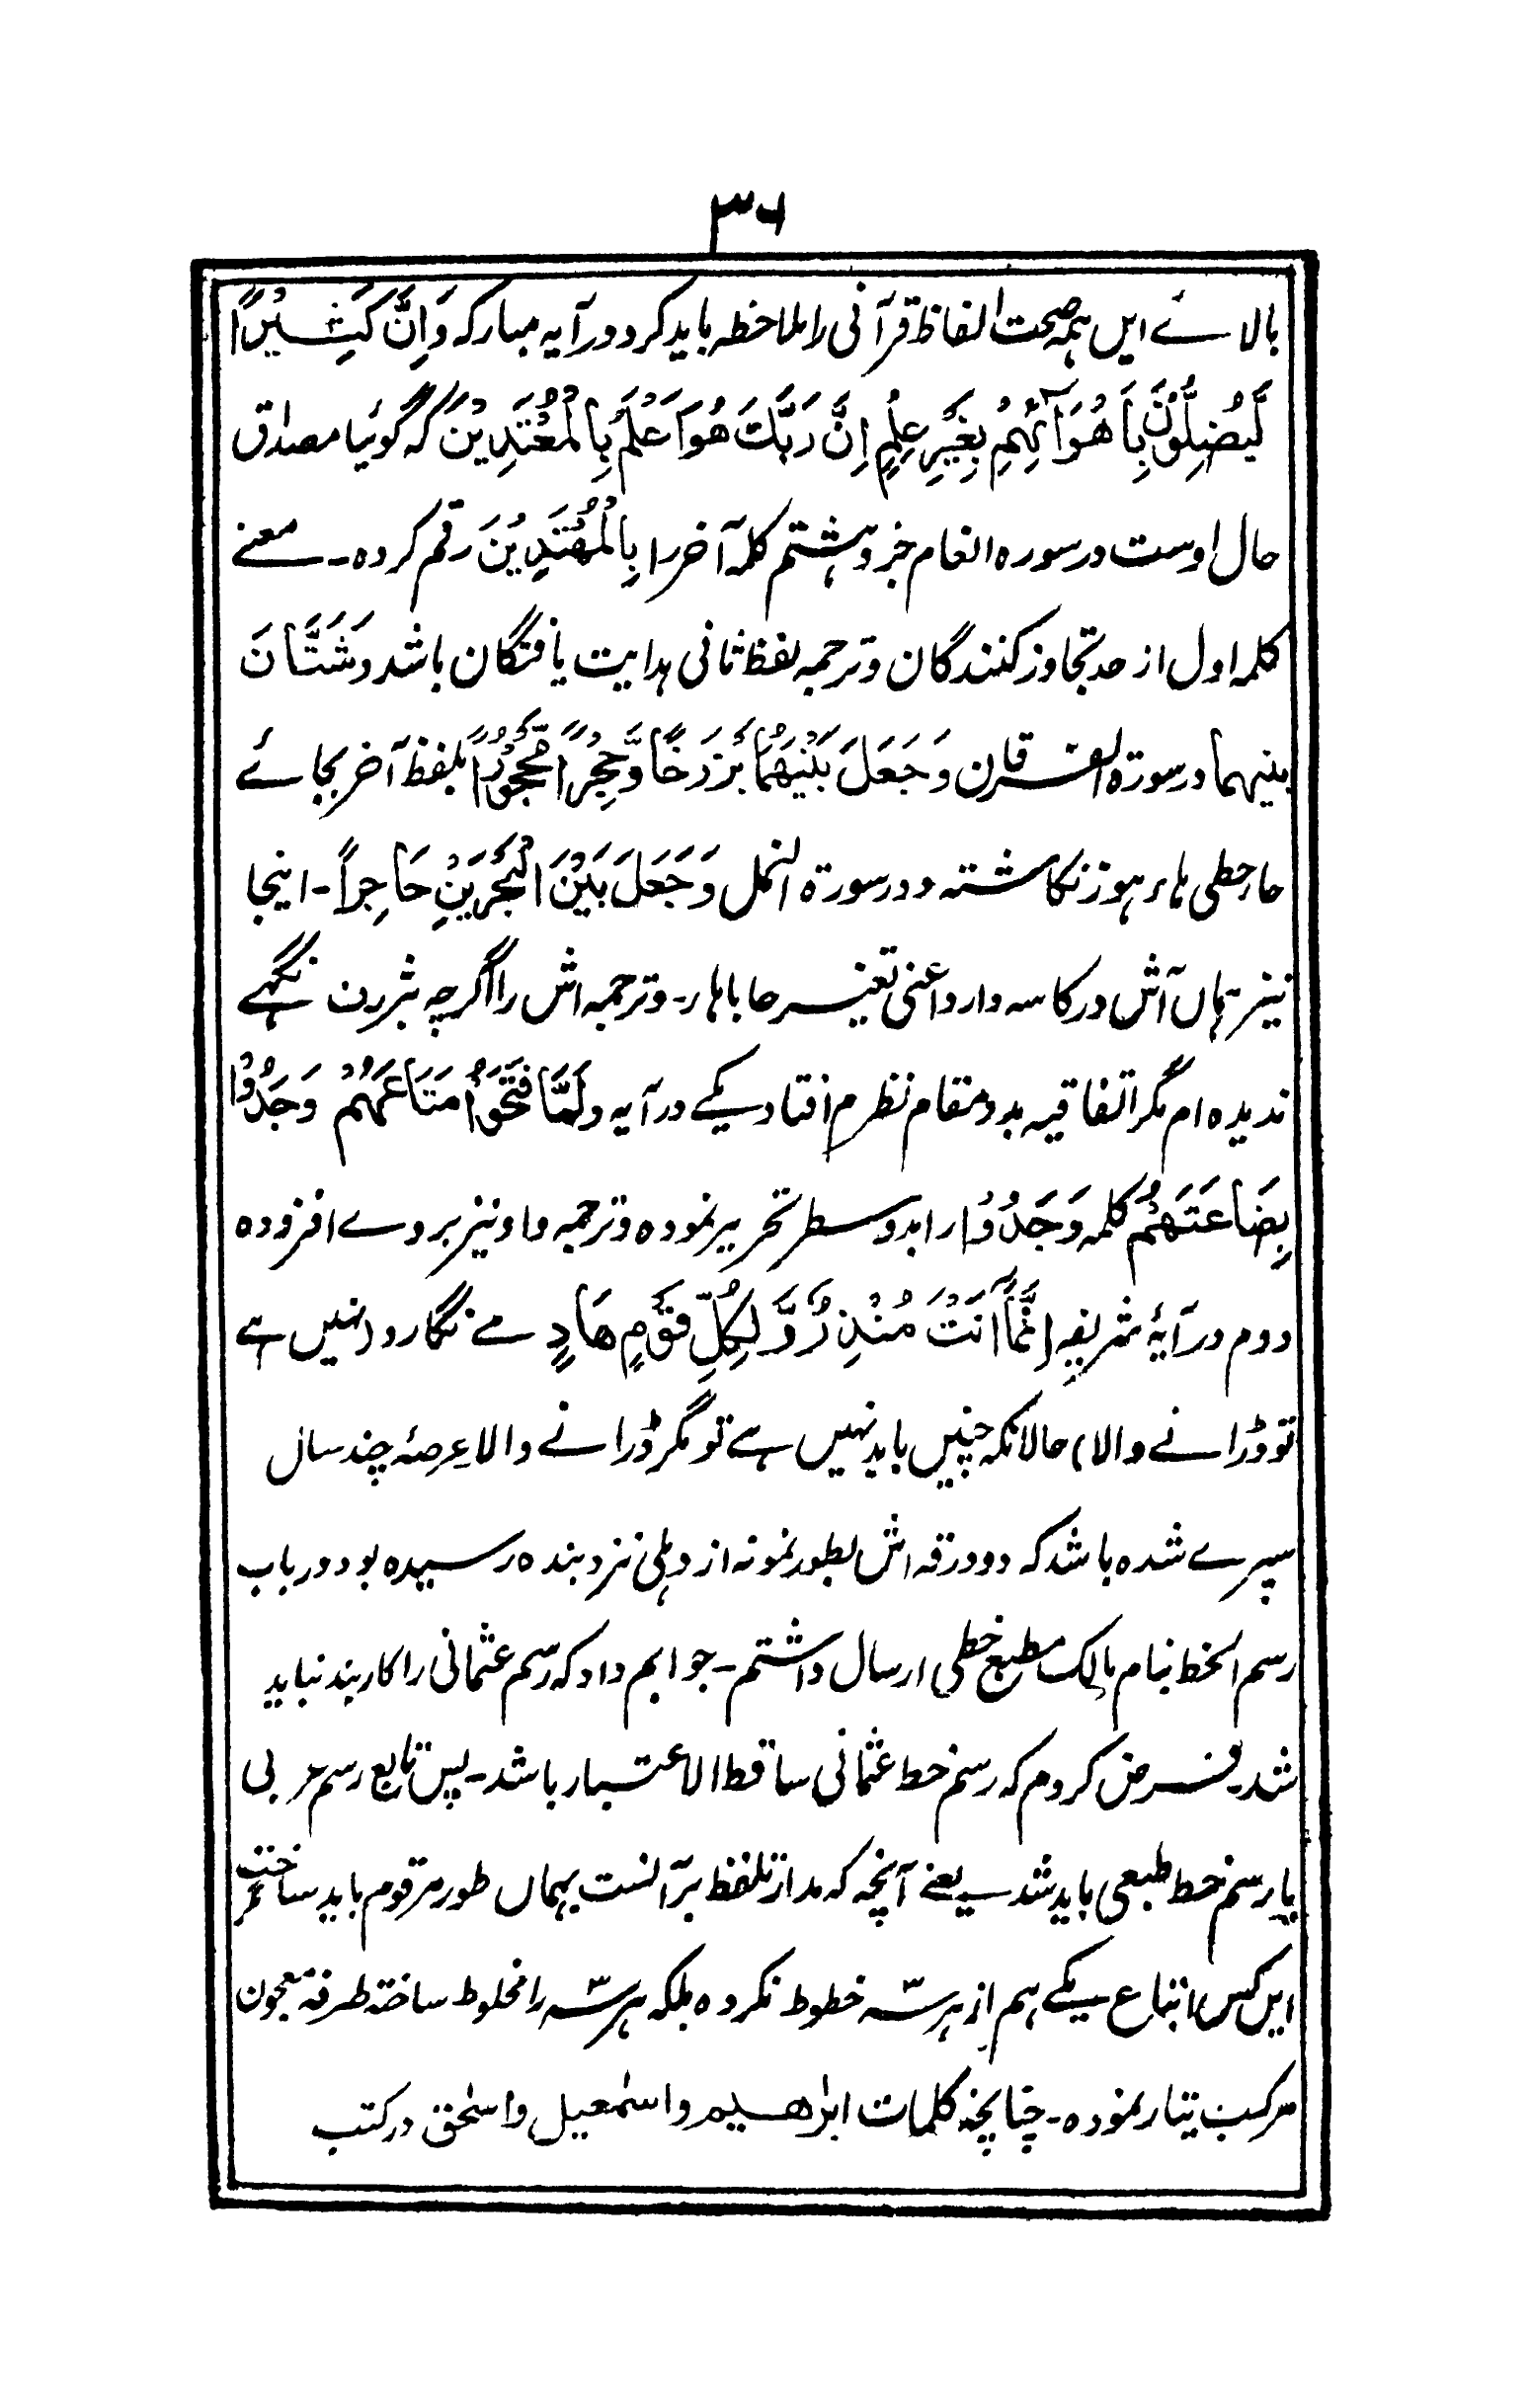 ۳۶
بالائے ایں ہمہ صحت الفاظ قرآنی را ملاحظہ باید کرد در آیہ مبارکہ وَاِنَّ كَثِيْرًا
لَّيُضِلُّوْنَ بِاَهْوَآئِهِمْ بِغَيْرِ عِلْمٍ اِنَّ رَبَّكَ هُوَ اَعْلَمُ بِالْمُعْتَدِيْنَ کہ گوئیا مصداق
حال اوست در سورہ انعام جزو ہشتم کلمہ آخر را بِالْمُهْتَدِيْنَ رقم کردہ۔ معنے
کلمہ اول از حد تجاوز کنندگان و ترجمہ لفظ ثانی ہدایت یافتگان باشد وَشَتَّانَ
بینہما در سورۃ الفرقان وَجَعَلَ بَيْنَهُمَا بَرْزَخًا وَّحِجْرًا مَّحْجُوْرًا بلفظ آخر بجائے
حار حطی ہاء ہوز نگاشتہ و در سورۃ النمل وَجَعَلَ بَيْنَ الْبَحْرَيْنِ حَاجِزًا۔ اینجا
نیز ہماں آش در کاسہ دارد اعنی تغیر حا با ہا۔ و ترجمہ اش را اگرچہ بژرن نگہے
ندیدہ ام مگر اتفاقیہ بدو مقام نظرم افتاد یکے در آیہ وَلَمَّا فَتَحُوْا مَتَاعَهُمْ وَجَدُوْا
بِضَاعَتَهُمْ کلمہ وَجَدُوْا را بدو سطر تحریر نمودہ و ترجمہ واو نیز بروے افزودہ
دوم در آیۂ شریفہ اِنَّمَا اَنْتَ مُنْذِرٌ وَّلِكُلِّ قَوْمٍ هَادٍ مے نگارد (نہیں ہے
تو ڈرانے والا) حالانکہ چنیں باید نہیں ہے تو مگر ڈرانے والا عرصۂ چند سال
سپرے شدہ باشد کہ دو ورقہ اش بطور نمونہ از دہلی نزد بندہ رسیدہ بود در باب
رسم الخط بنام مالک مطبع خطی ارسال داشتم۔ جوابم داد کہ رسم عثمانی را کاربند نباید
شد۔ فرض کردم کہ رسم خط عثمانی ساقط الاعتبار باشد۔ پس تابع رسم عربی
یا رسم خط طبعی باید شد یعنے آنچہ کہ مدار تلفظ برآنست بہماں طور مرقوم باید ساخت مگر
ایں کس اتباع یکے ہم از ہر سہ خطوط نکردہ بلکہ ہر سہ را مخلوط ساختہ طرفہ معجون
مرکب تیار نمودہ۔ چنانچہ کلمات ابرٰهيم و اسمٰعيل و اسحٰق در کتب